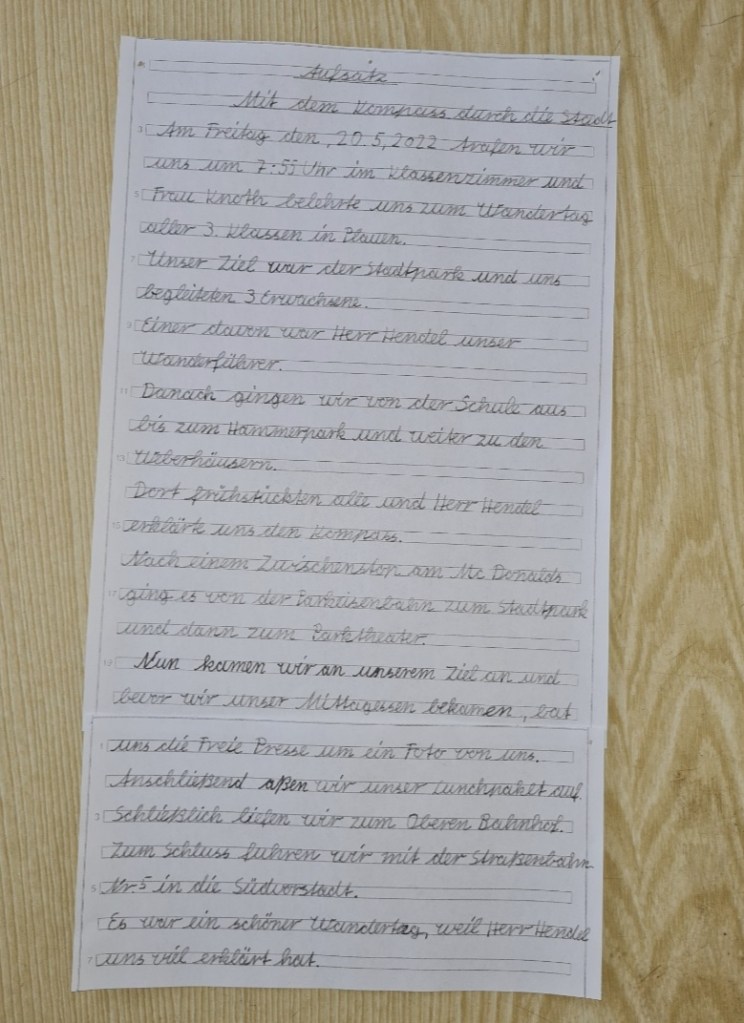 Aufsatz
Mit dem Kompass durch die Stadt
Am Freitag den, 20.5,2022 trafen wir
uns um 7:55 Uhr im Klassenzimmer und
Frau Knoth belehrte uns zum Wandertag
aller 3. Klassen in Plauen.
Unser Ziel war der Stadtpark und uns
begleiteten 3 Erwachsene.
Einer davon war Herr Hendel unser
Wanderführer.
Danach gingen wir von der Schule aus
bis zum Hammerpark und weiter zu den
Weberhäusern.
Dort frühstückten alle und Herr Hendel
erklärk uns den Kompass.
Nach einem Zwischenstop am Mc Donalds
ging es von der Parkeisenbahn zum Stadtpark
und dann zum Parktheater.
Nun kamen wir an unserem Ziel an und
bevor wir unser Mittagessen bekamen, bat
uns die Freie Presse um ein Foto von uns.
Anschließend aßen wir unser Lunchpaket auf.
Schließlich liefen wir zum Oberen Bahnhof.
Zum Schluss fuhren wir mit der Straßenbahn
Nr.5 in die Südvorstadt.
Es war ein schöner Wandertag, weil Herr Hendel
uns vill erklärt hat.